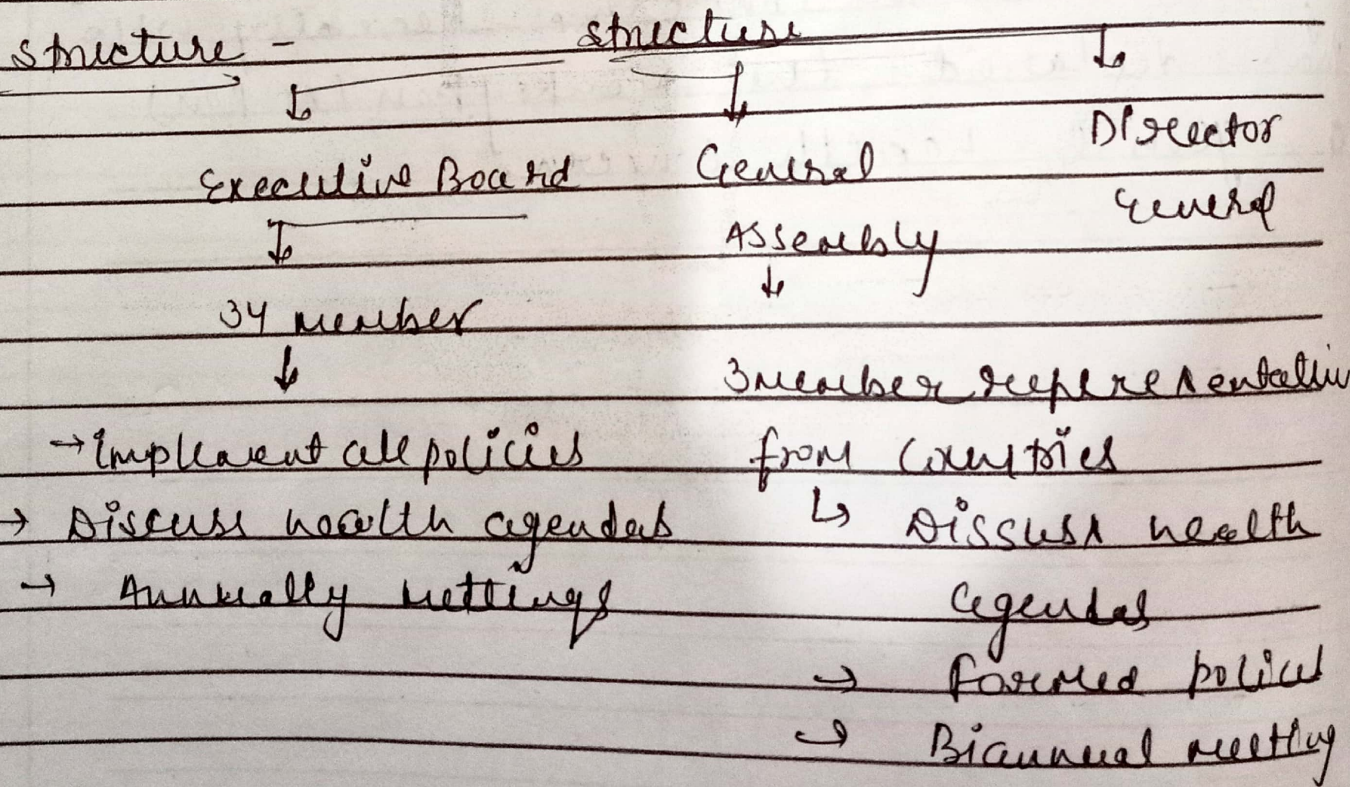 structure - structure
Executive Board
34 member
→ implement all policies
→ Discuss health agendas
→ Annually mettings
General
Assembly
3 member representativ
from countries
↳ Dissuss health
agendas
→ formed polices
→ Biannual meetting
Director
General